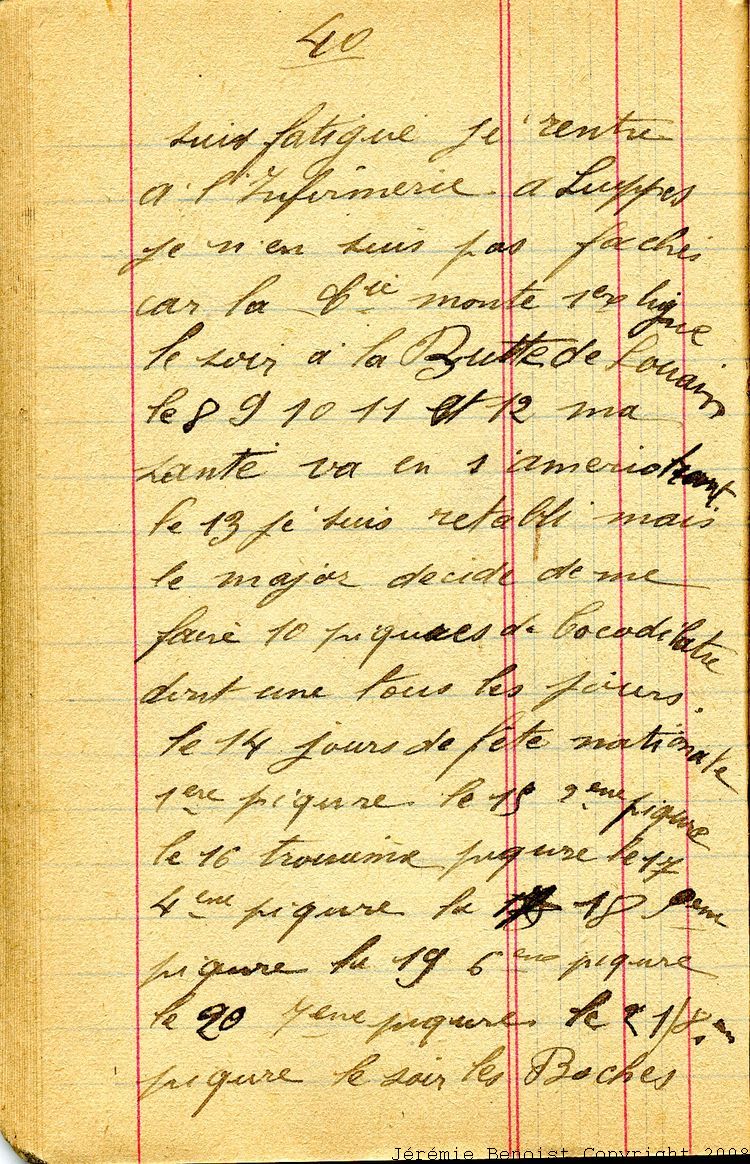 40
suis fatigué je rentre
a l'Infirmerie a Suyppes
je n'en suis pas fachés
car la Cie monte 1er ligne
le soir a la Butte de Souain
le 8 9 10 11 et 12 ma
santé va en s'ameriotrant
le 13 je suis retabli mais
le major decide de me
faire 10 piqures de Cocodilatre
dont une tous les jours.
le 14 jours de fête nationale
1ere piqure le 15 2eme piqure
le 16 trouaime piqure le 17
4eme piqure le 18 5em
piqure le 19 6eme piqure
le 20 7eme piqure le 21 8em
piqure le soir les Boches
Jérémie Benoist Copyright 2008